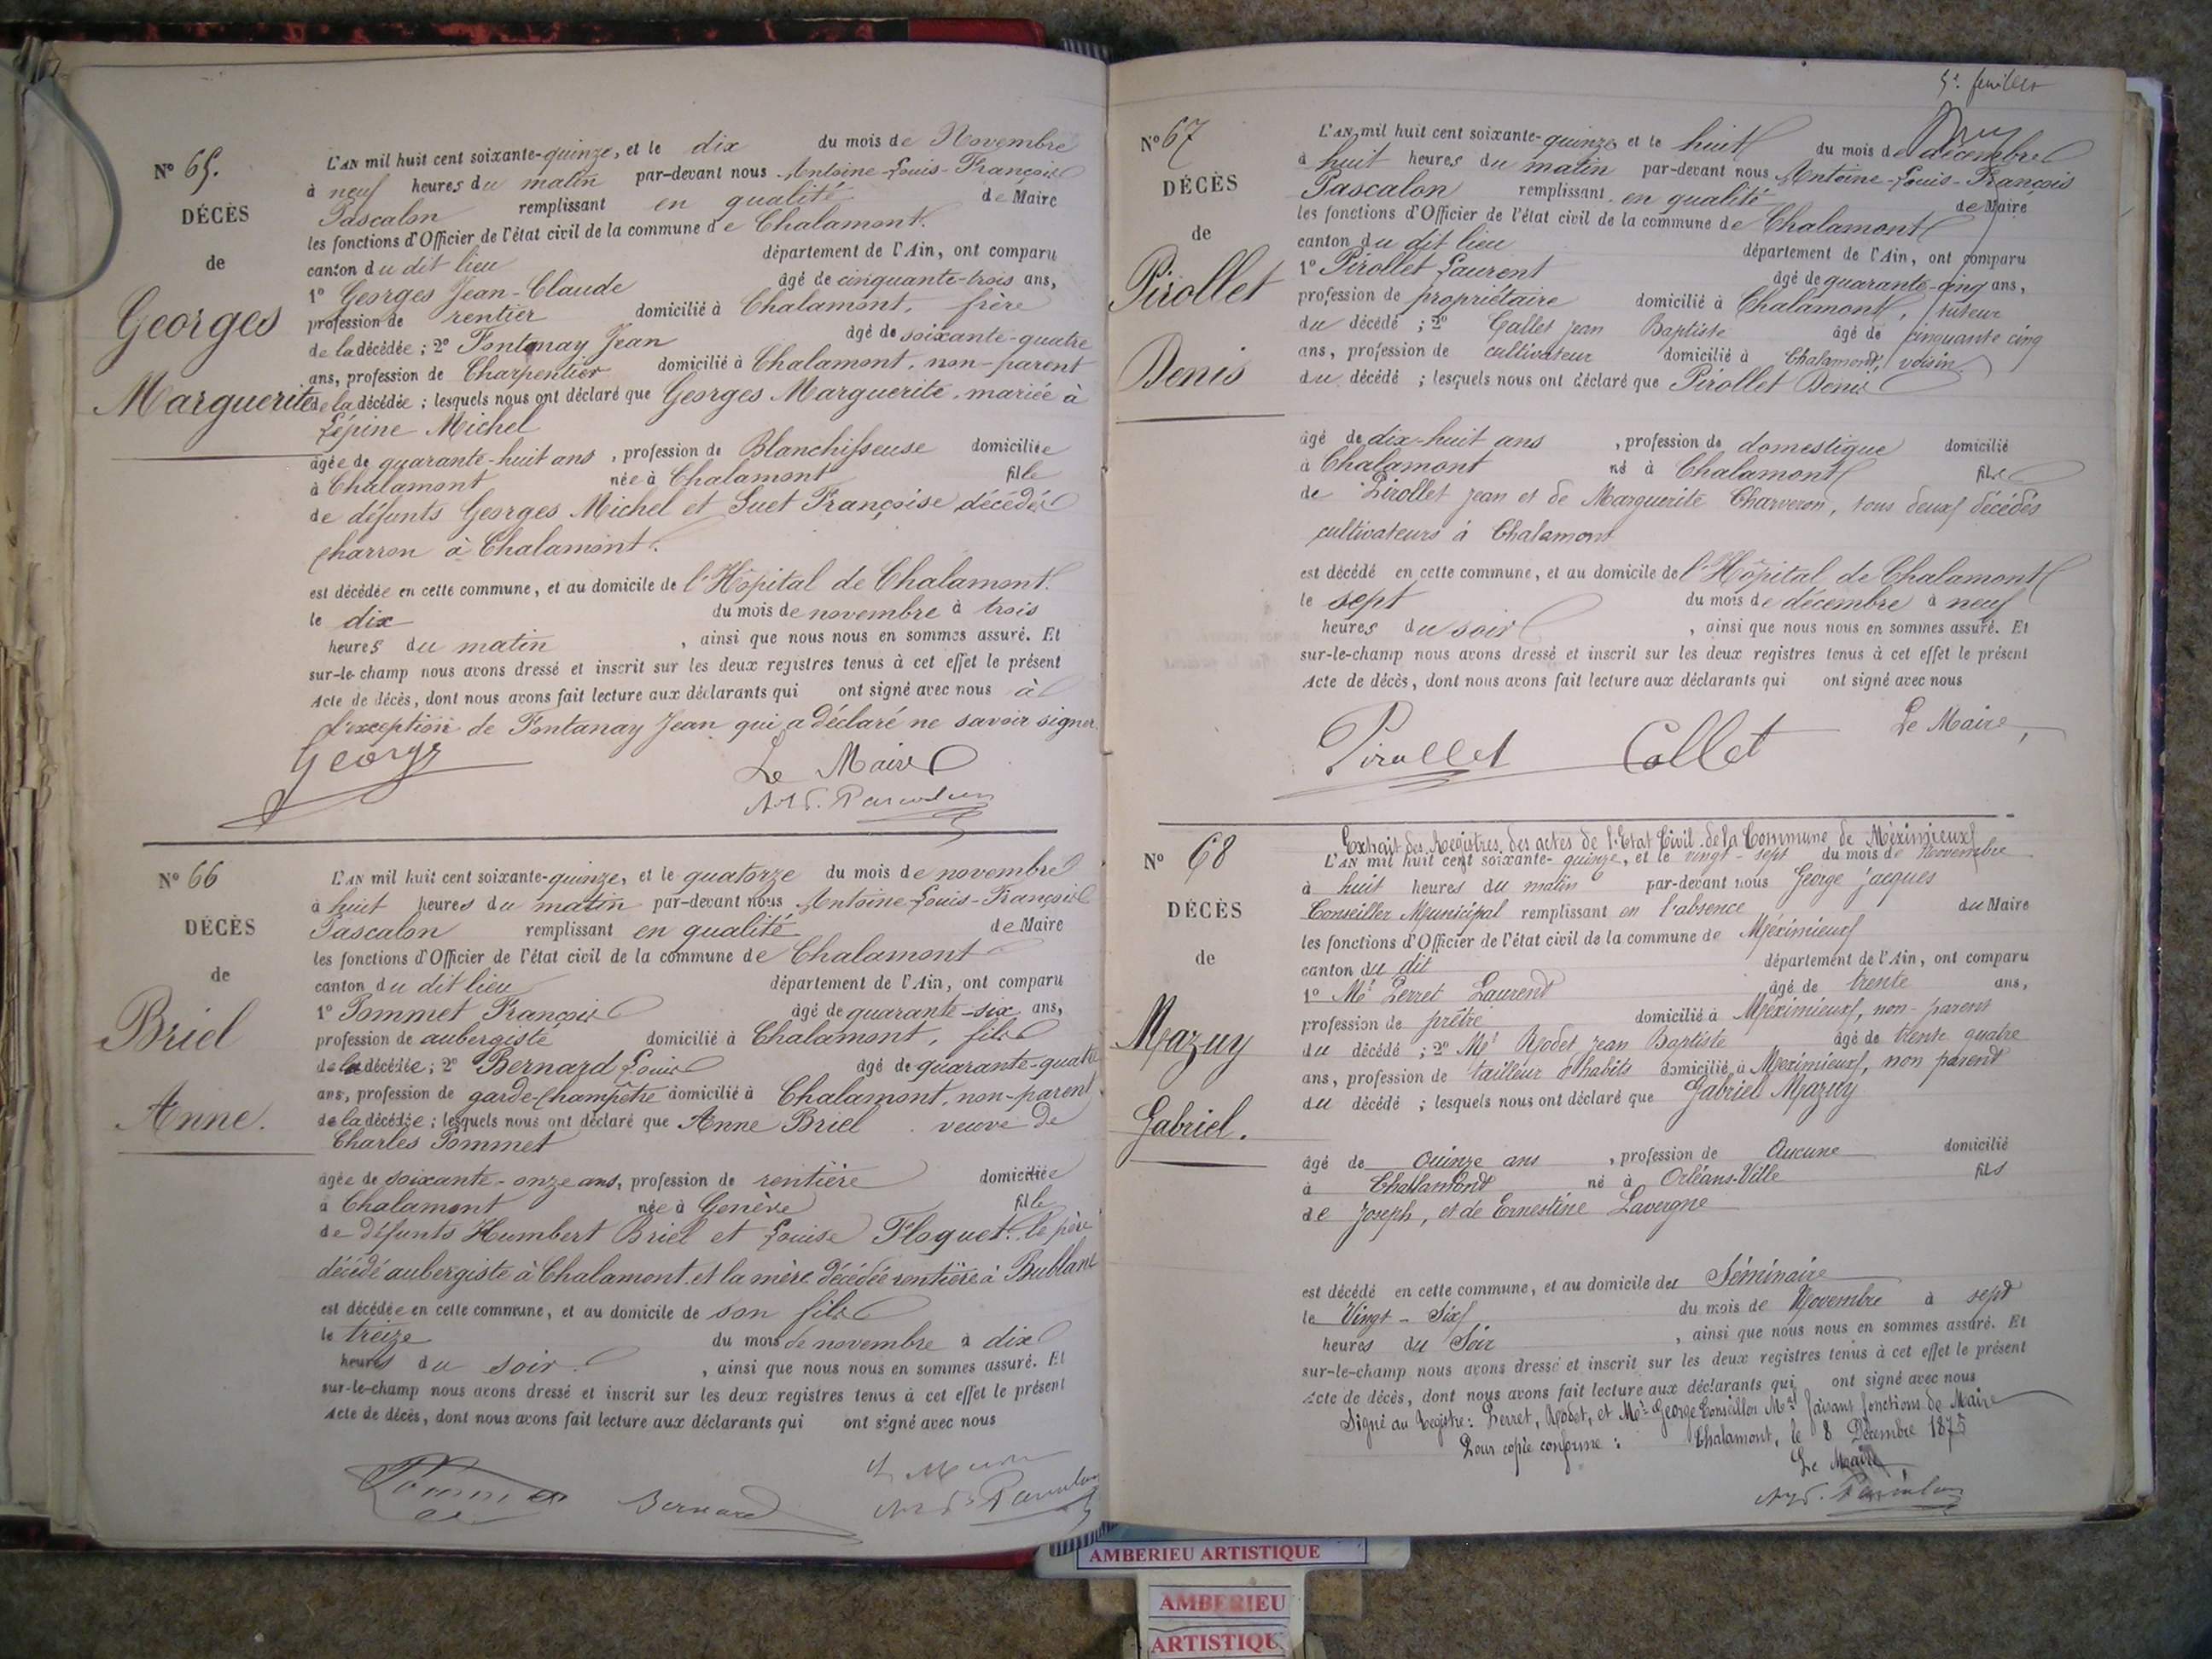 N° 65.
DÉCÈS
de
Georges
Marguerite
L'AN mil huit cent soixante-quinze, et le dix du mois de Novembre
à neuf heures du matin par-devant nous Antoine-Louis-François
Pascalon remplissant en qualité de Maire
les fonctions d'Officier de l'état civil de la commune de Chalamont.
canton du dit lieu département de l'Ain, ont comparu
1° Georges Jean-Claude âgé de cinquante-trois ans,
profession de rentier domicilié à Chalamont, frère
de la décédée ; 2° Fontanay Jean âgé de soixante-quatre
ans, profession de Charpentier domicilié à Chalamont, non-parent
de la décédée ; lesquels nous ont déclaré que Georges Marguerite, mariée à
Lépine Michel
âgée de quarante-huit ans, profession de Blanchisseuse domiciliée
à Chalamont née à Chalamont fille
de défunts Georges Michel et Guet Françoise décédés
charron à Chalamont.
est décédée en cette commune, et au domicile de l'Hôpital de Chalamont.
le dix du mois de novembre à trois
heures du matin, ainsi que nous nous en sommes assuré. Et
sur-le-champ nous avons dressé et inscrit sur les deux registres tenus à cet effet le présent
Acte de décès, dont nous avons fait lecture aux déclarants qui ont signé avec nous à
l'exception de Fontanay Jean qui a déclaré ne savoir signer.
George
Le Maire
N° 66
DÉCÈS
de
Briel
Anne.
L'AN mil huit cent soixante-quinze, et le quatorze du mois de novembre
à huit heures du matin par-devant nous Antoine-Louis-François
Pascalon remplissant en qualité de Maire
les fonctions d'Officier de l'état civil de la commune de Chalamont
canton du dit lieu département de l'Ain, ont comparu
1° Pommet François âgé de quarante-six ans,
profession de aubergiste domicilié à Chalamont, fils
de la décédée ; 2° Bernard Louis âgé de quarante-quatre
ans, profession de garde-champêtre domicilié à Chalamont, non-parent
de la décédée ; lesquels nous ont déclaré que Anne Briel veuve de
Charles Pommet
âgée de soixante-onze ans, profession de rentière domiciliée
à Chalamont née à Genève fille
de défunts Humbert Briel et Louise Floquet. le père
décédé aubergiste à Chalamont et la mère décédée rentière à Bublane
est décédée en cette commune, et au domicile de son fils
le treize du mois de novembre à dix
heures du soir, ainsi que nous nous en sommes assuré. Et
sur-le-champ nous avons dressé et inscrit sur les deux registres tenus à cet effet le présent
Acte de décès, dont nous avons fait lecture aux déclarants qui ont signé avec nous
Pommet Bernard
N° 67
DÉCÈS
de
Pirollet
Denis
L'AN mil huit cent soixante-quinze et le huit du mois de décembre
à huit heures du matin par-devant nous Antoine-Louis-François
Pascalon remplissant en qualité de Maire
les fonctions d'Officier de l'état civil de la commune de Chalamont
canton du dit lieu département de l'Ain, ont comparu
1° Pirollet Laurent âgé de quarante-cinq ans,
profession de propriétaire domicilié à Chalamont, tuteur
du décédé ; 2° Collet Jean Baptiste âgé de cinquante cinq
ans, profession de cultivateur domicilié à Chalamont, voisin
du décédé ; lesquels nous ont déclaré que Pirollet Denis
âgé de dix-huit ans, profession de domestique domicilié
à Chalamont né à Chalamont fils
de Pirollet Jean et de Marguerite Charveron, tous deux décédés
cultivateurs à Chalamont
est décédé en cette commune, et au domicile de l'Hôpital de Chalamont
le sept du mois de décembre à neuf
heures du soir, ainsi que nous nous en sommes assuré. Et
sur-le-champ nous avons dressé et inscrit sur les deux registres tenus à cet effet le présent
Acte de décès, dont nous avons fait lecture aux déclarants qui ont signé avec nous
Le Maire,
Pirollet Collet
N° 68
DÉCÈS
de
Mazuy
Gabriel.
Extrait des Registres des actes de l'Etat Civil de la Commune de Méximieux
L'AN mil huit cent soixante-quinze, et le vingt-sept du mois de Novembre
à huit heures du matin par-devant nous George Jacques
Conseiller Municipal remplissant en l'absence du Maire
les fonctions d'Officier de l'état civil de la commune de Méximieux
canton du dit département de l'Ain, ont comparu
1° Mr Perret Laurent âgé de trente ans,
profession de prêtre domicilié à Méximieux, non-parent
du décédé ; 2° Mr Rodet Jean Baptiste âgé de trente quatre
ans, profession de tailleur d'habits domicilié à Meximieux, non parent
du décédé ; lesquels nous ont déclaré que Gabriel Mazuy
âgé de Quinze ans, profession de Aucune domicilié
à Challamond né à Orléans-Ville fils
de Joseph, et de Ernestine Lavergne
est décédé en cette commune, et au domicile du Séminaire
le Vingt-Six du mois de Novembre à sept
heures du Soir, ainsi que nous nous en sommes assuré. Et
sur-le-champ nous avons dressé et inscrit sur les deux registres tenus à cet effet le présent
Acte de décès, dont nous avons fait lecture aux déclarants qui ont signé avec nous
Signé au Registre : Perret, Rodet, et Mr George Conseiller Mal faisant fonctions de Maire
Pour copie conforme : Chalamont, le 8 Décembre 1875
Le Maire
AMBERIEU ARTISTIQUE
AMBERIEU
ARTISTIQU